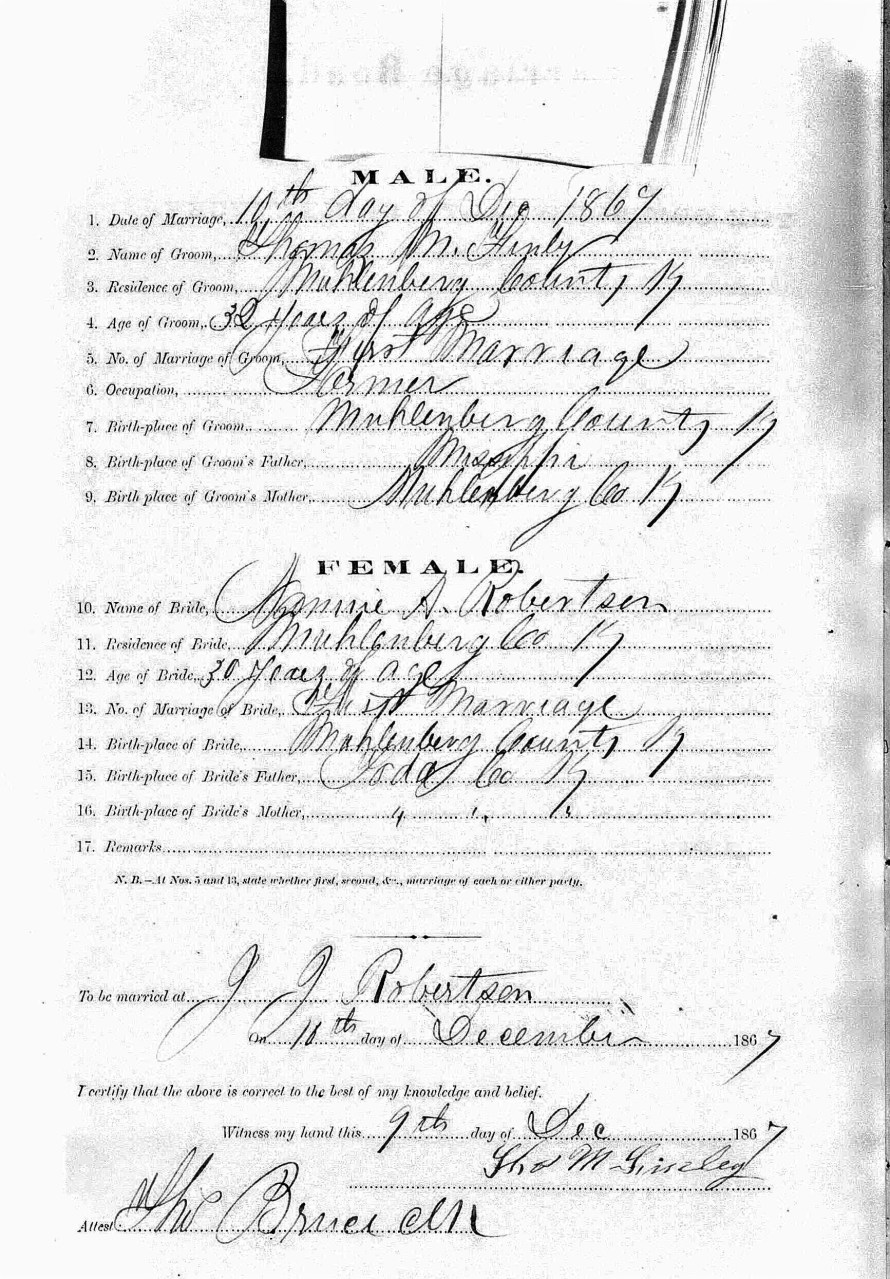 MALE.
1. Date of Marriage, 10th day of Dec 1867
2. Name of Groom, Thomas M. Finly
3. Residence of Groom, Muhlenberg County Ky
4. Age of Groom, 32 years of age
5. No. of Marriage of Groom, First Marriage
6. Occupation, Farmer
7. Birth-place of Groom Muhlenberg County Ky
8. Birth-place of Groom's Father,
9. Birth place of Groom's Mother, Muhlenberg Co Ky
FEMALE.
10. Name of Bride, Nannie A. Robertson
11. Residence of Bride, Muhlenberg Co Ky
12. Age of Bride, 30 years of age
13. No. of Marriage of Bride, First Marriage
14. Birth-place of Bride, Muhlenberg County Ky
15. Birth-place of Bride's Father, Todd Co Ky
16. Birth-place of Bride's Mother, " " "
17. Remarks
N. B.—At Nos. 5 and 13, state whether first, second, &c., marriage of each or either party.
To be married at J J Robertson
On 10th day of December 1867
I certify that the above is correct to the best of my knowledge and belief.
Witness my hand this 9th day of Dec 1867
Thos M
Attest Bruce